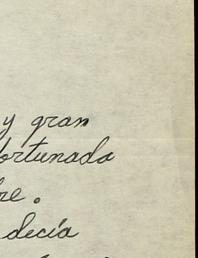 y gran
fortunada
re.
decía